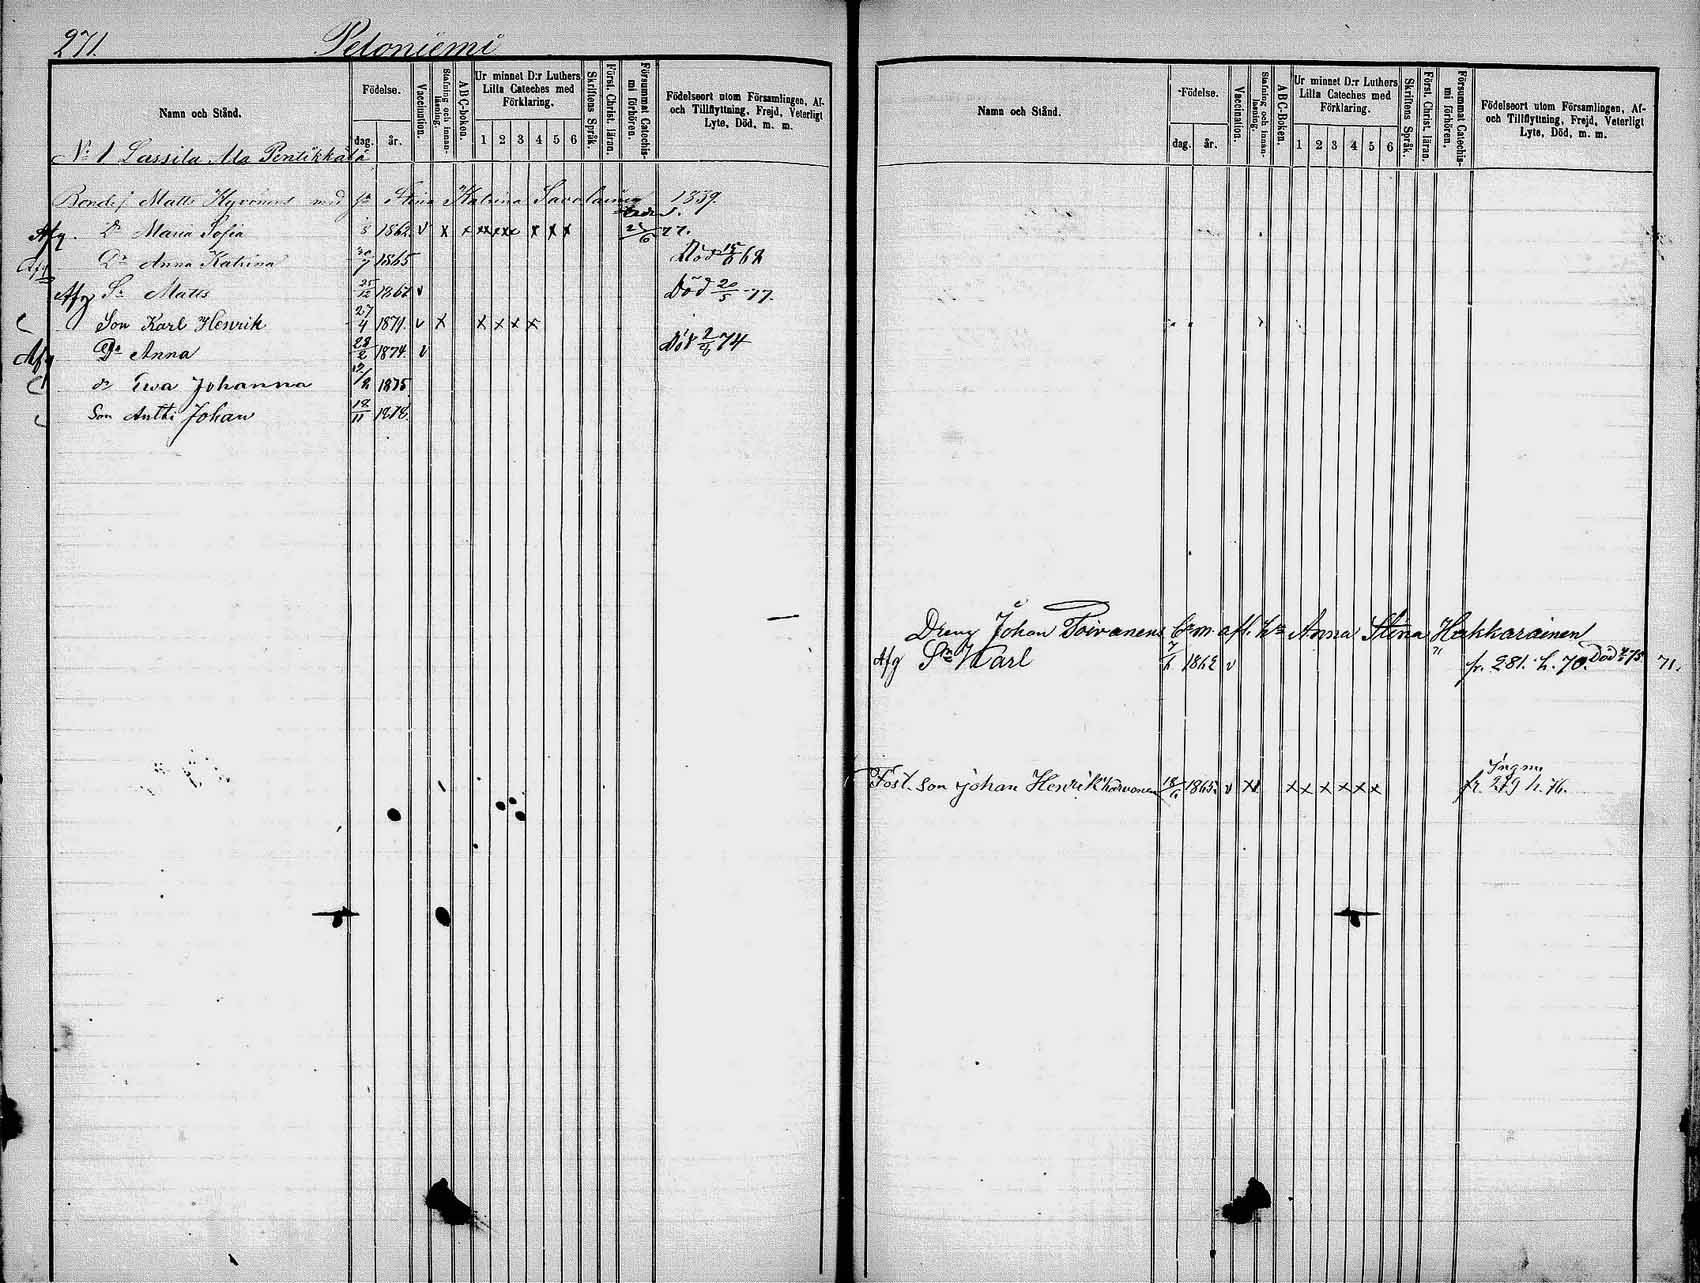 271. Peloniemi
Namn och Stånd.
Födelse.
dag. år.
Vaccination.
Stafning och innan-läsning.
ABC-boken.
Ur minnet D:r Luthers Lilla Cateches med Förklaring.
1 2 3 4 5 6
Skriftens Språk.
Först. Christ. läran.
Försummat Catechis-mi förhören.
Födelseort utom Församlingen, Af- och Tillflyttning, Frejd, Veterligt Lyte, Död, m. m.
No 1 Lassila Ala Pentikkälä
Bondef Matts Hyvönens med hu Stina Katrina Savolainen 1339.
Afg. Dr Maria Sofia 1862 v x x x x x x x x 77.
Afg Dr Anna Katrina 30/7 1865 Död 68
Afg Sn Matts 25/12 1867 v Död 20/5 77.
Son Karl Henrik 27/4 1871. v x x x x x
Afg Dr Anna 28/2 1874. v Död 74
dr Ewa Johanna 1875
Son Antti Johan 18/11 1878.
Namn och Stånd.
Födelse.
dag. år.
Vaccination.
Stafning och innan-läsning.
ABC-boken.
Ur minnet D:r Luthers Lilla Cateches med Förklaring.
1 2 3 4 5 6
Skriftens Språk.
Först. Christ. läran.
Försummat Catechis-mi förhören.
Födelseort utom Församlingen, Af- och Tillflyttning, Frejd, Veterligt Lyte, Död, m. m.
Dreng Johan Toivanens afl. hu Anna Stina Hakkarainen
Afg Sn Karl 1862 v fr. 281. h. 70. Död 75 71.
Fost. son Johan Henrik 1865. v x x x x x x x x Ingm fr. 279 h. 76.